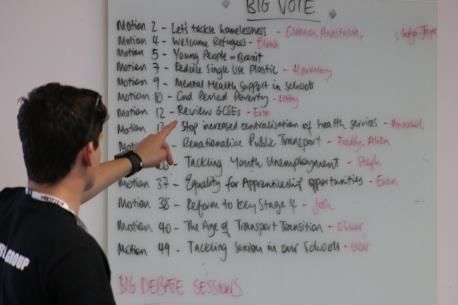 BIG VOTE
Motion 2 - Let's tackle homelessness - Anastasia,
Motion 4 - Welcome Refugees - Emma
Motion 5 - Young People on Brexit
Motion 7 - Reduce Single Use Plastic -
Motion 9 - Mental Health Support in schools
Motion 10 - End Period Poverty -
Motion 12 - Review GCSEs - Erin
Motion - Stop increased centralisation of health services -
- Renationalise Public Transport - Freddy,
- Tackling Youth Unemployment - Steph
Motion 37 - Equality for Apprenticeship opportunities - Evan
Motion 38 - Reform to Key Stage 4 - Josh
Motion 40 - The Age of Transport Transition - Oliver
Motion 49 - Tackling Sexism in our Schools -
BIG DEBATE SESSIONS
GROUP